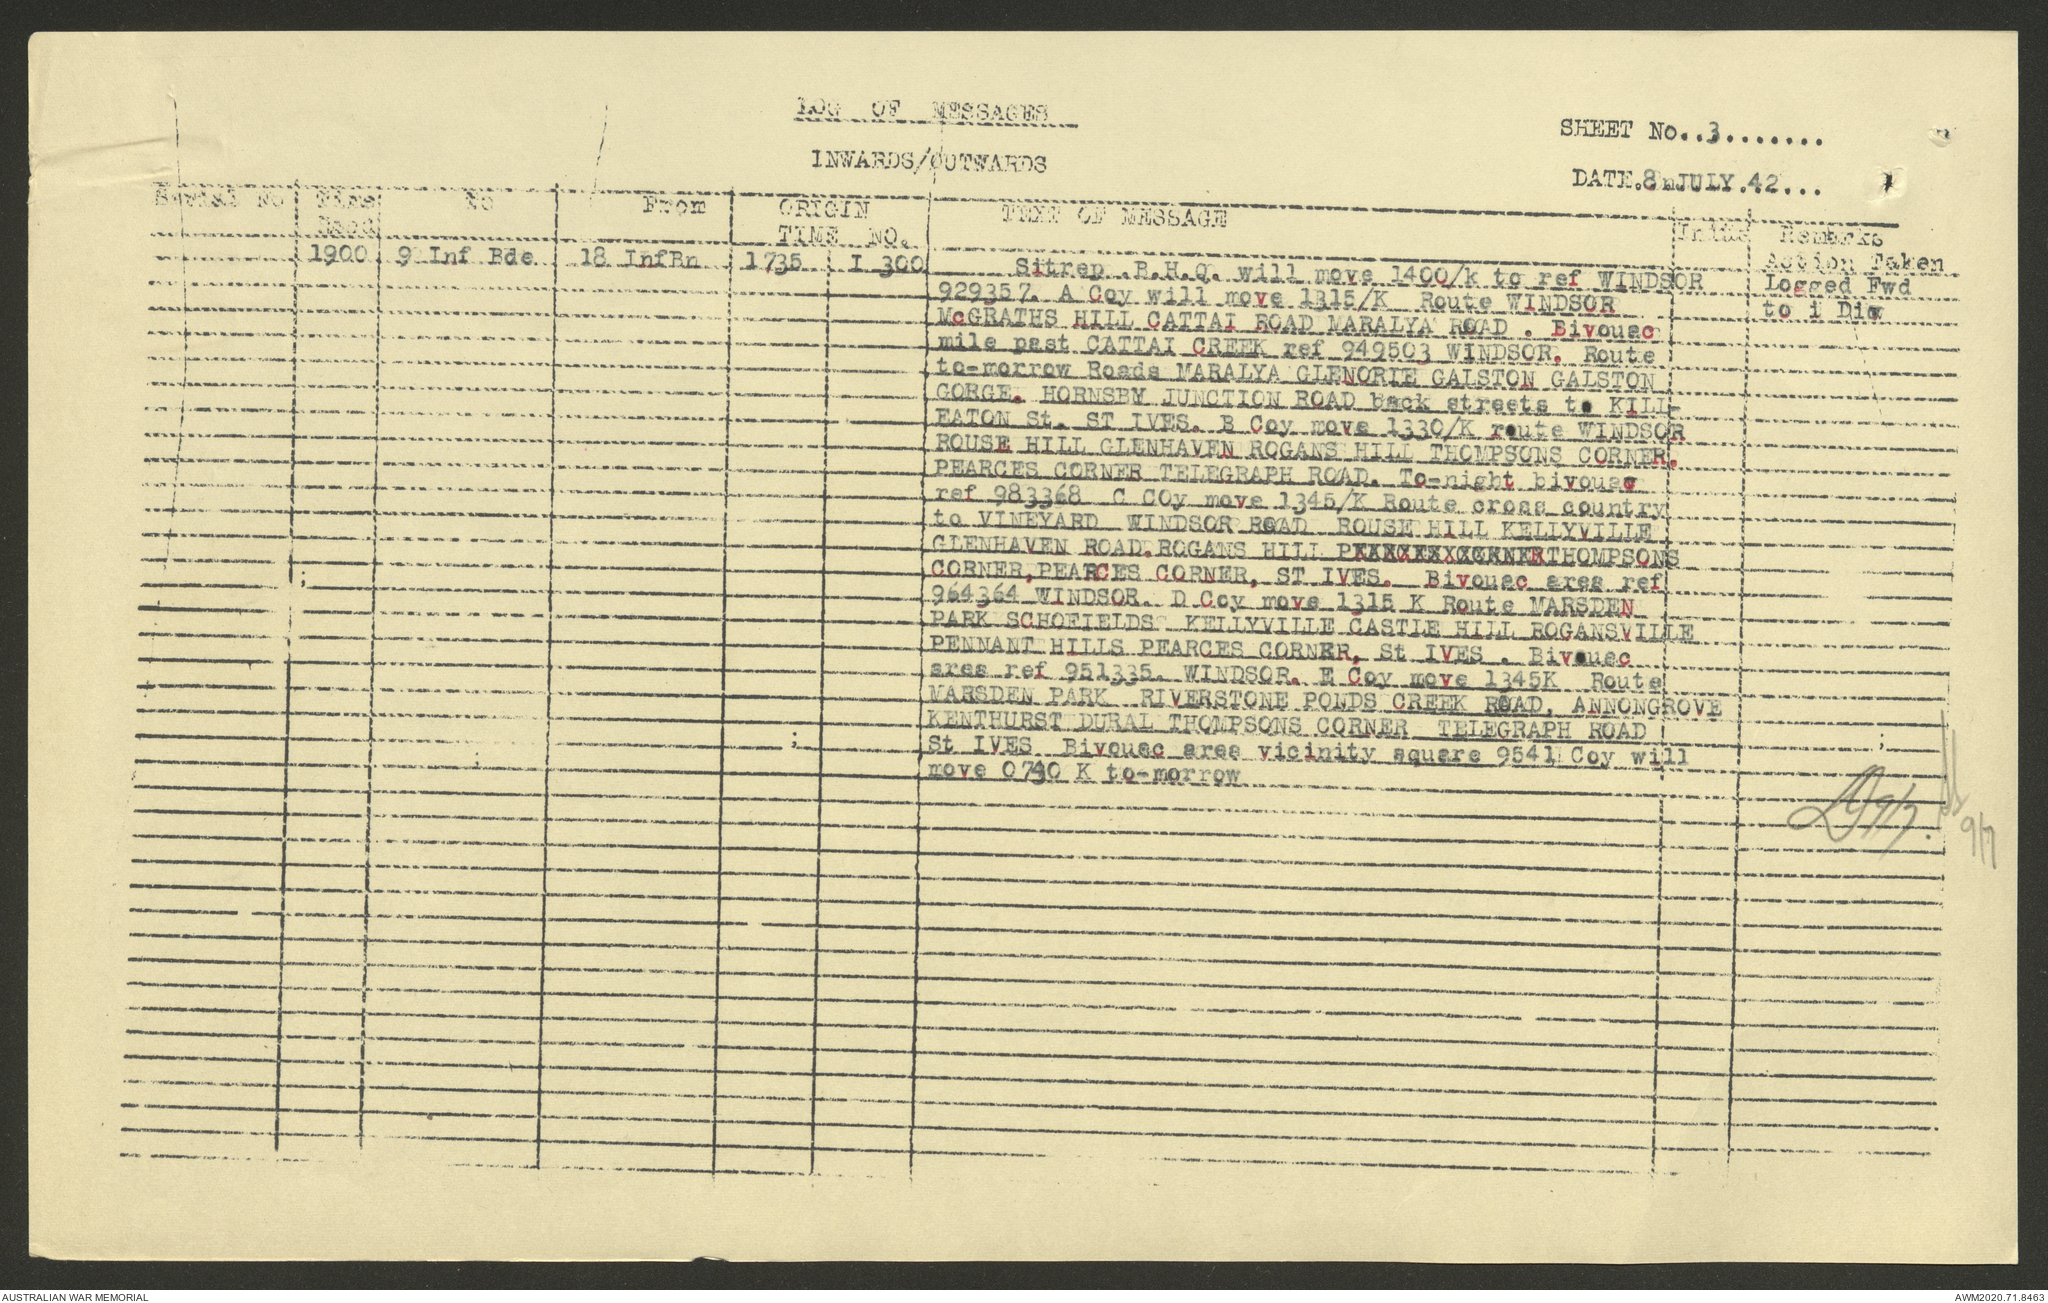 LOG OF MESSAGES
INWARDS/OUTWARDS
SHEET No..3.......
DATE.8nJULY.42...
Serial No Time No From ORIGIN TEXT OF MESSAGE Remarks
Recd TIME NO. Action Taken
1900 9 Inf Bde 18 InfBn 1735 I 300 Sitrep .R.H.Q. will move 1400/k to ref WINDSOR Logged Fwd
929357. A Coy will move 1315/K Route WINDSOR to 1 Div
McGRATHS HILL CATTAI ROAD MARALYA ROAD . Bivouac
mile past CATTAI CREEK ref 949503 WINDSOR. Route
to-morrow Roads MARALYA GLENORIE GALSTON GALSTON
GORGE. HORNSBY JUNCTION ROAD back streets to KILL-
EATON St. ST IVES. B Coy move 1330/K route WINDSOR
ROUSE HILL GLENHAVEN ROGANS HILL THOMPSONS CORNER.
PEARCES CORNER TELEGRAPH ROAD. To-night bivouac
ref 983368 C COy move 1345/K Route cross country
to VINEYARD WINDSOR ROAD ROUSE HILL KELLYVILLE
GLENHAVEN ROAD.ROGANS HILL THOMPSONS
CORNER,PEARCES CORNER, ST IVES. Bivouac area ref
964364 WINDSOR. D Coy move 1315 K Route MARSDEN
PARK SCHOFIELDS KELLYVILLE CASTLE HILL ROGANSVILLE
PENNANT HILLS PEARCES CORNER, St IVES . Bivouac
area ref 951335. WINDSOR. E Coy move 1345K Route
MARSDEN PARK RIVERSTONE PONDS CREEK ROAD, ANNONGROVE
KENTHURST DURAL THOMPSONS CORNER TELEGRAPH ROAD
St IVES Bivouac area vicinity square 9541 Coy will
move 0730 K to-morrow
9/7
9/7
AUSTRALIAN WAR MEMORIAL
AWM2020.71.8463